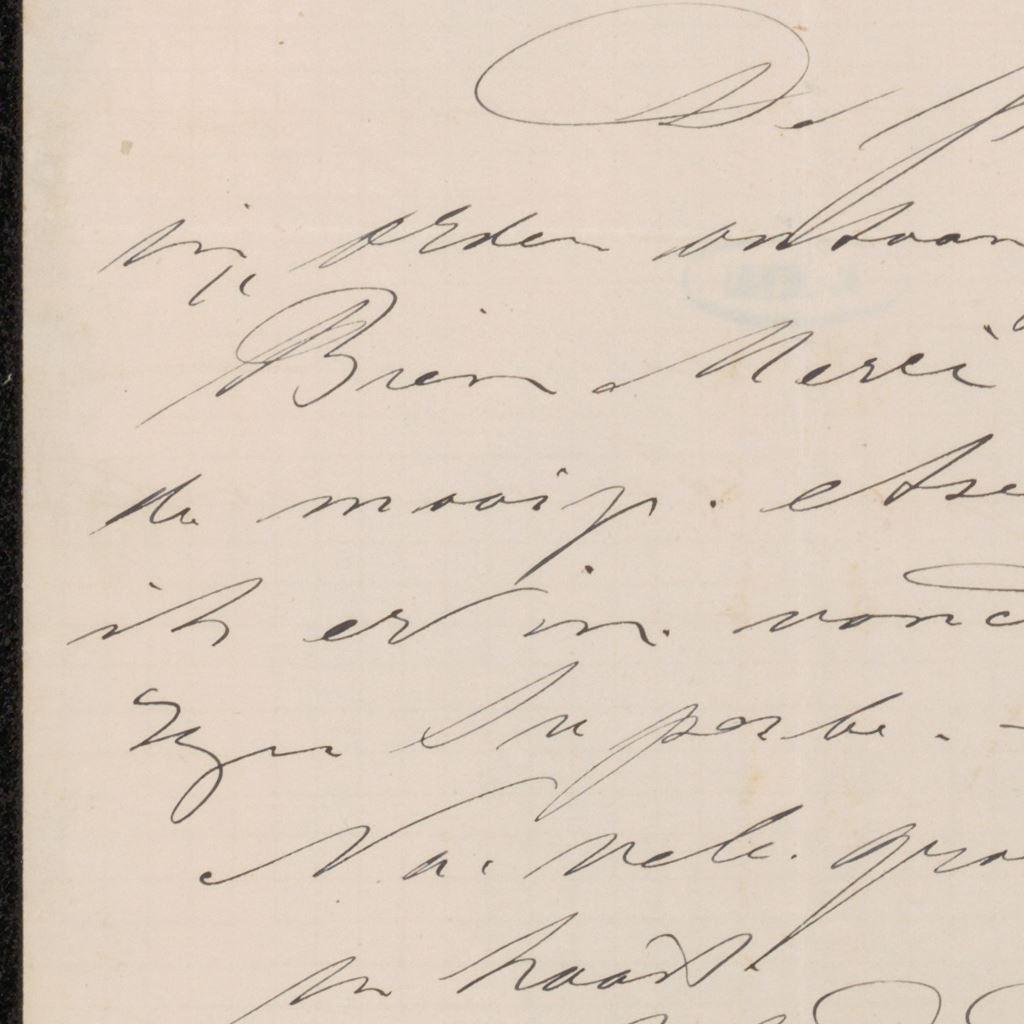 De
in orden ontvan
Bien Merci
de mooije etse
ik er in vond
zijn Superbe. -
Na vele gro
in haast.